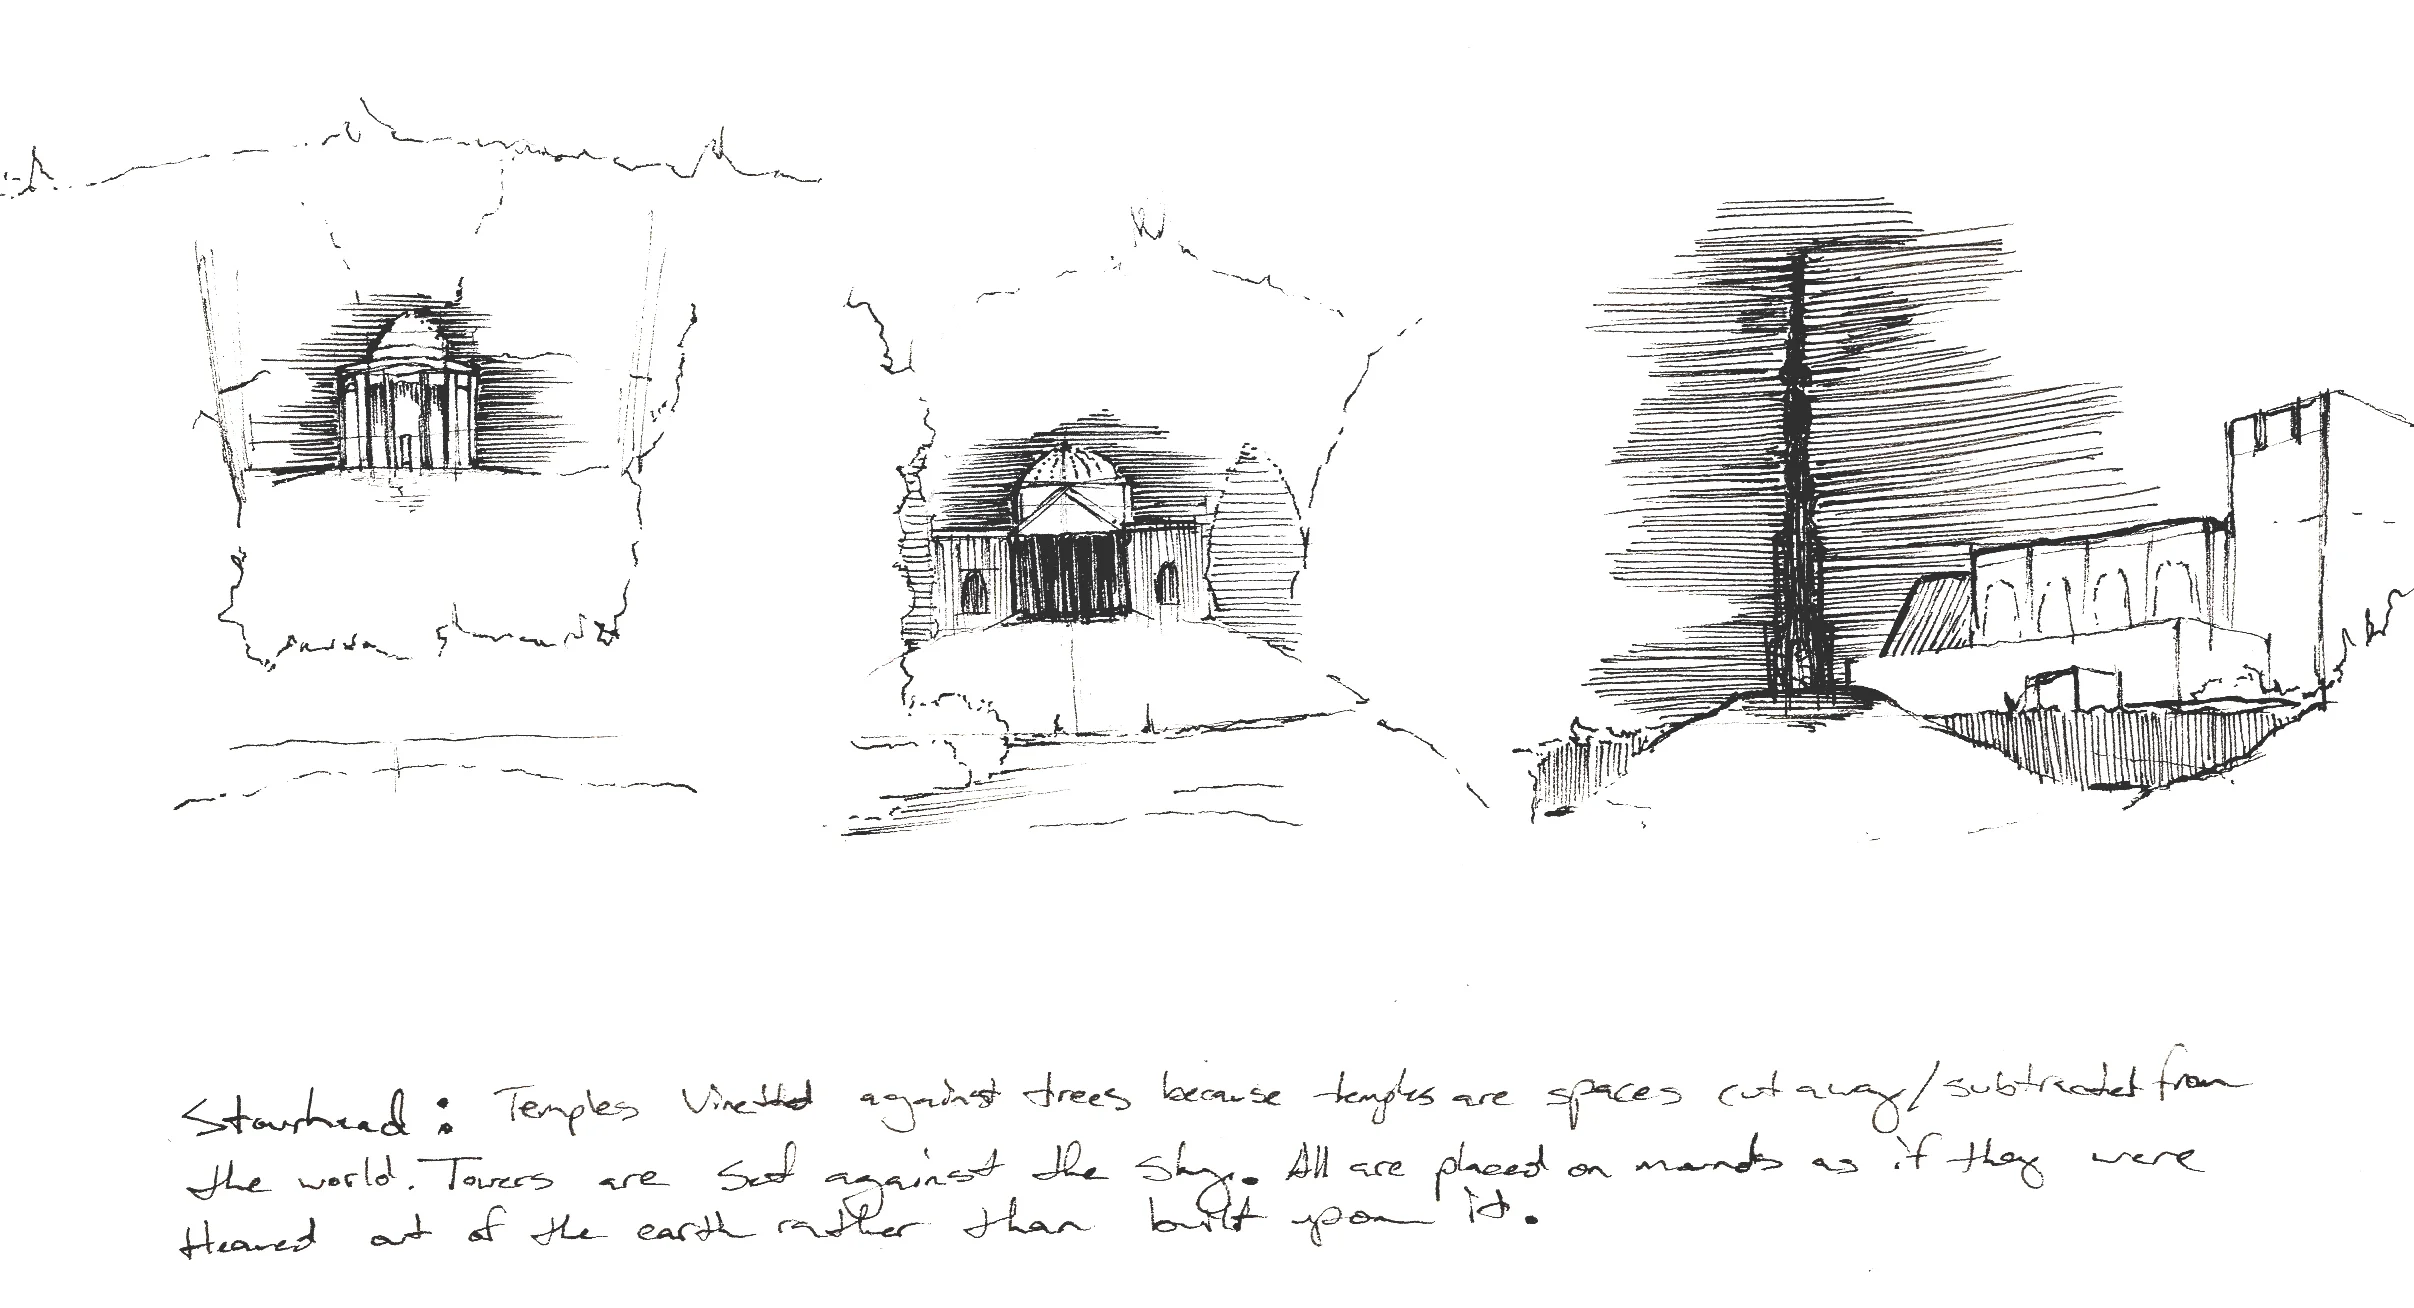 Stourhead: Temples Vinetted against trees because temples are spaces cut away/subtracted from
the world. Towers are set against the sky. All are placed on mounds as if they were
Heaved out of the earth rather than built upon it.